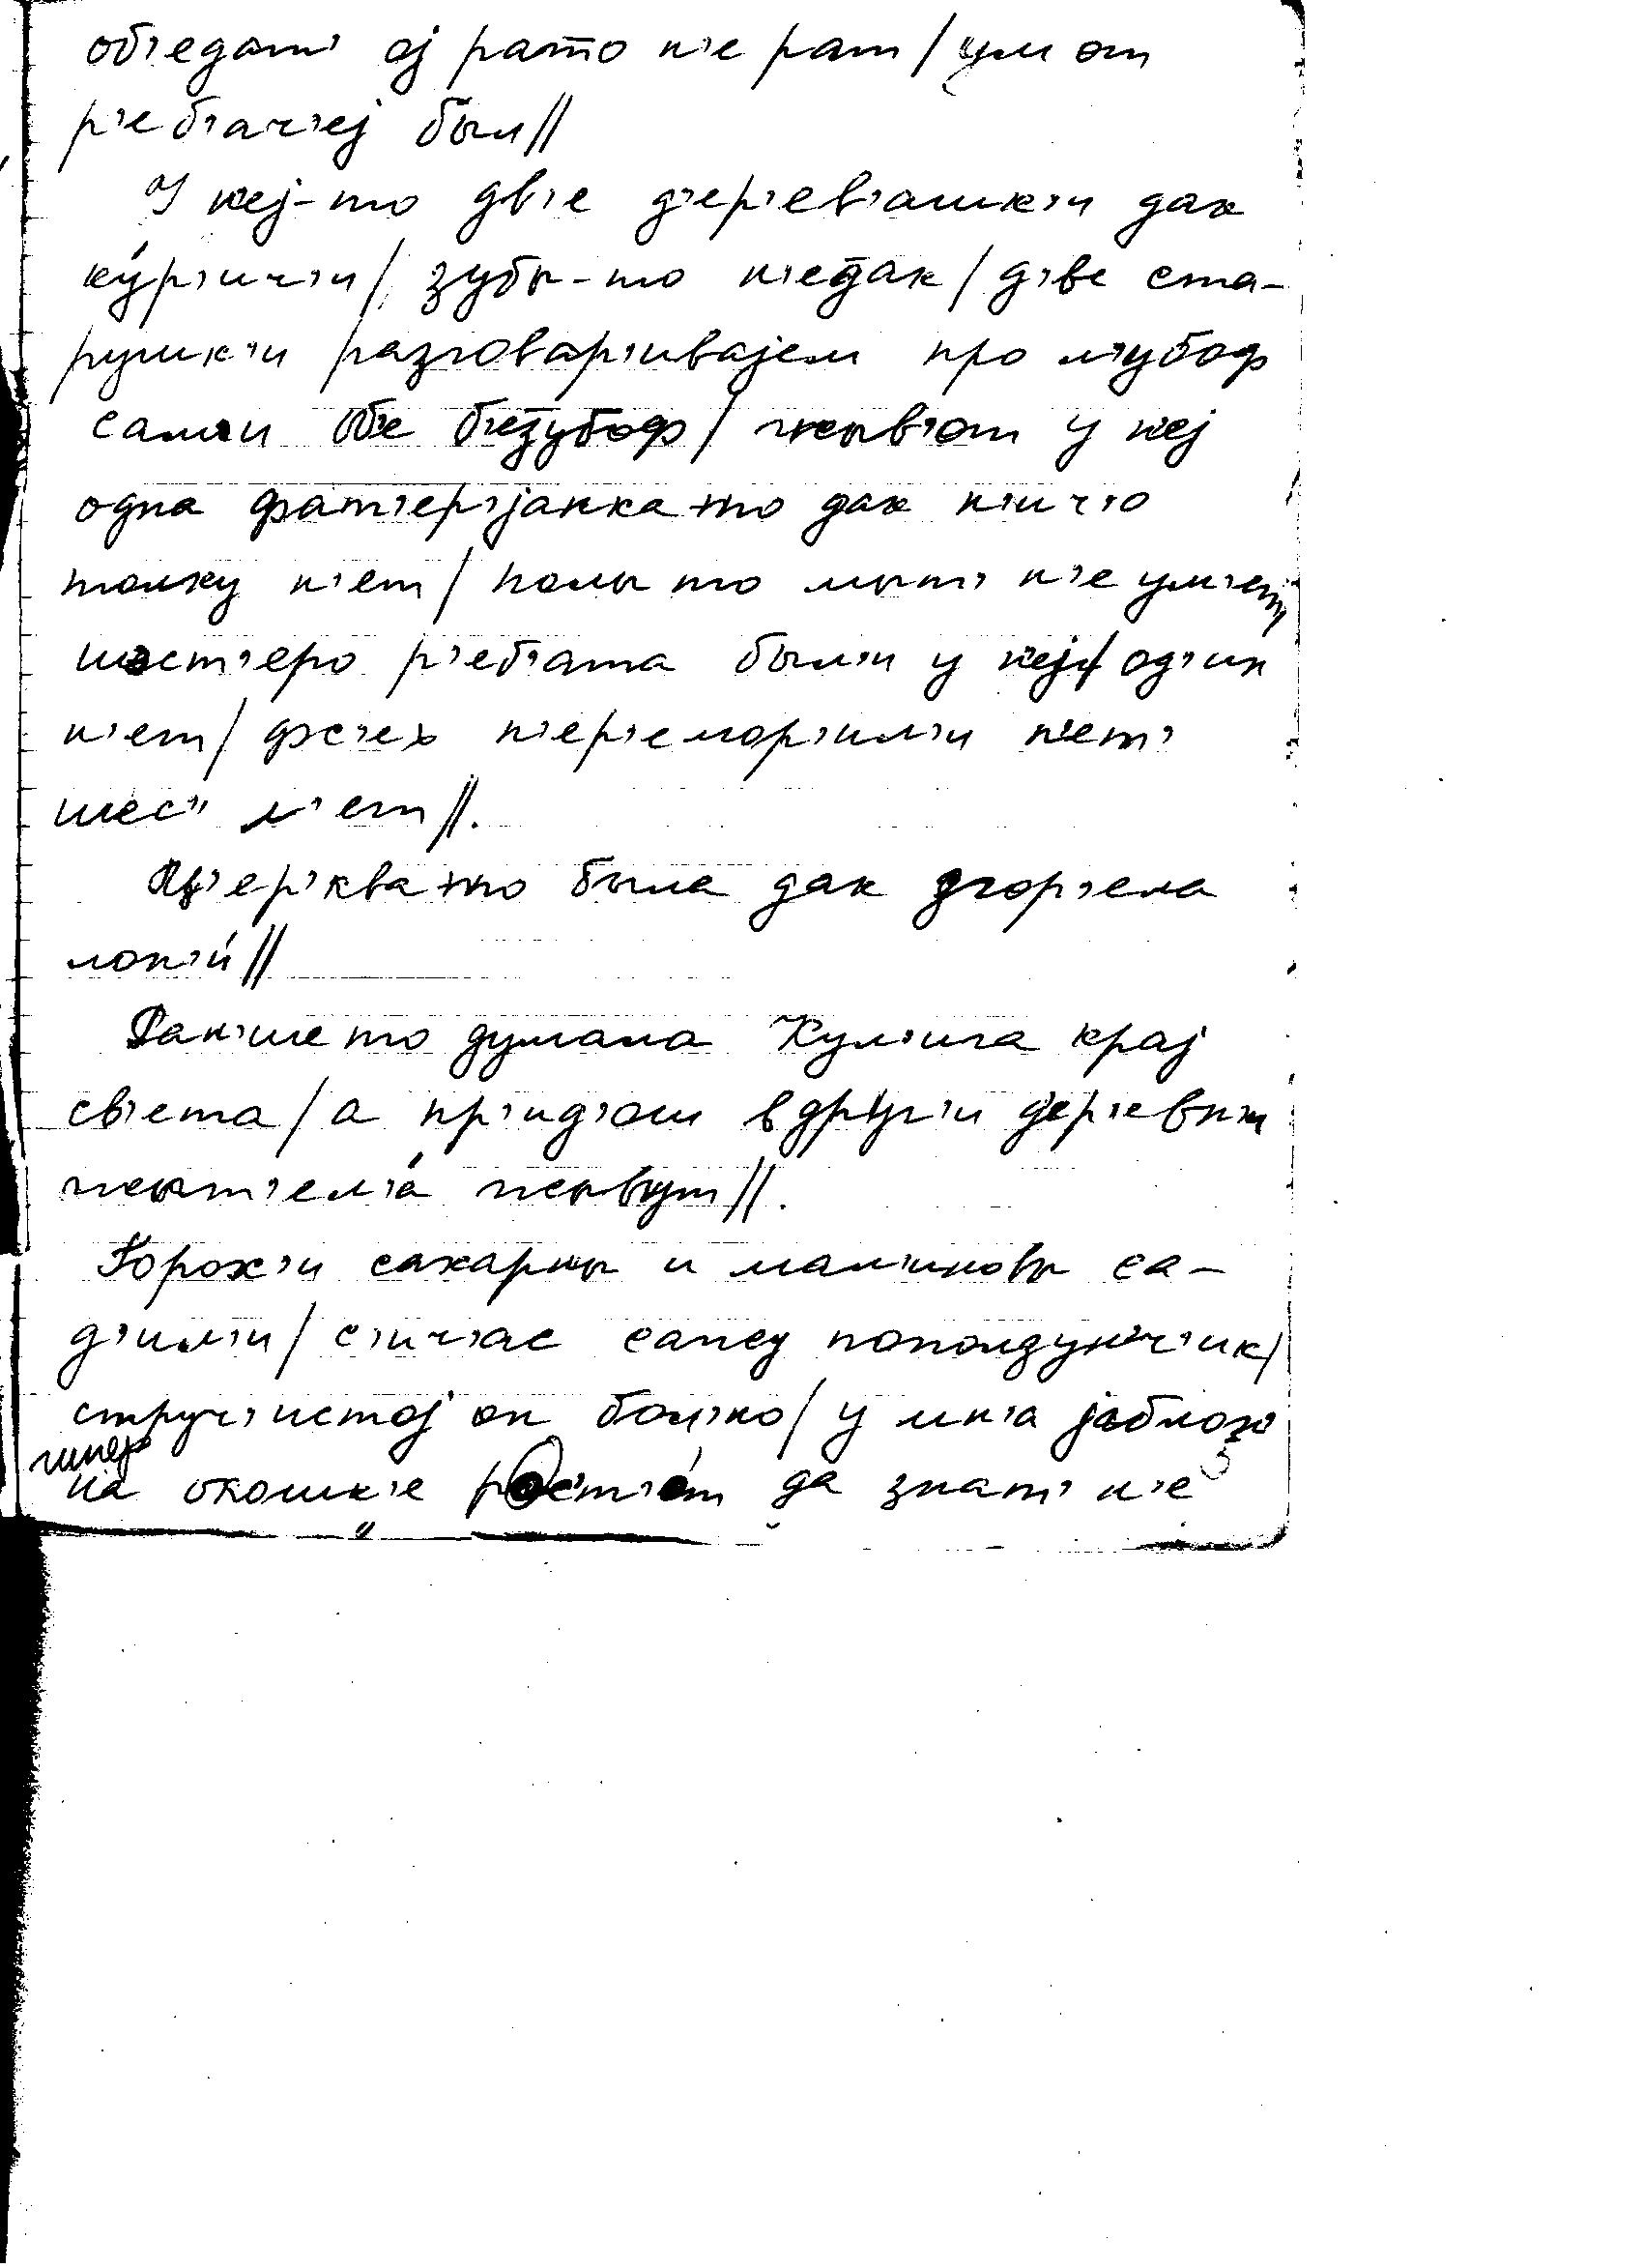 об'едат' ој рат̄о н'е рат / ум от
р'еб'ач'еј был //
У н'еј-то дв'е д'ер'ев'ашк'и дак
ку́р'ич'и / зубы-то н'ед̄ак / д'ве ста-
рушк'и разговар'ивајем про л'убоф
сам'и об'е б'иззубоф / жыв'от у н'еј
одна фат'ер'јанка-то дак н'ич'о
толку н'ет / полы то мыт' н'е ум'ет
шэст'еро р'еб'ата был'и у н'еј / од'ин
н'ет / фс'ех п'ер'емор'ил'и п'ет'
шес' л'ет //.
Ц'ер'ква-то была дак згор'ела
лон'и́ //
Ран'ше то думала Кул'ига крај
св'ета / а пр'ид'ош в друг'и д'ер'евн'и
жыт'ел'а́ жывут //.
Горох'и сахарны и мал'иновы са-
д'ил'и / с'ич'ас сап̄у пополз̄ун'ч'ик /
струч'истој он бол'но / у м'н'а јаблон'
на окошк'е рост'о́т да знат' н'е